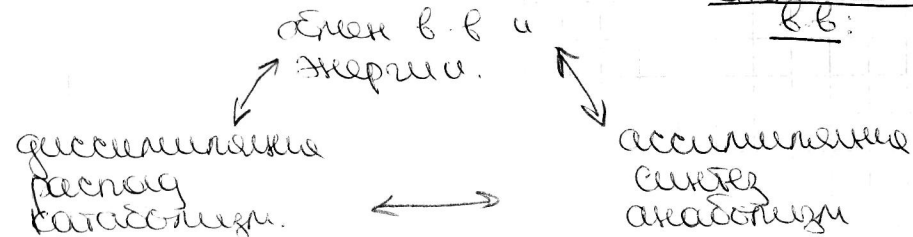 в.в:
обмен в.в и
энергии.
диссимиляция
распад
катаболизм.
ассимиляция
синтез
анаболизм